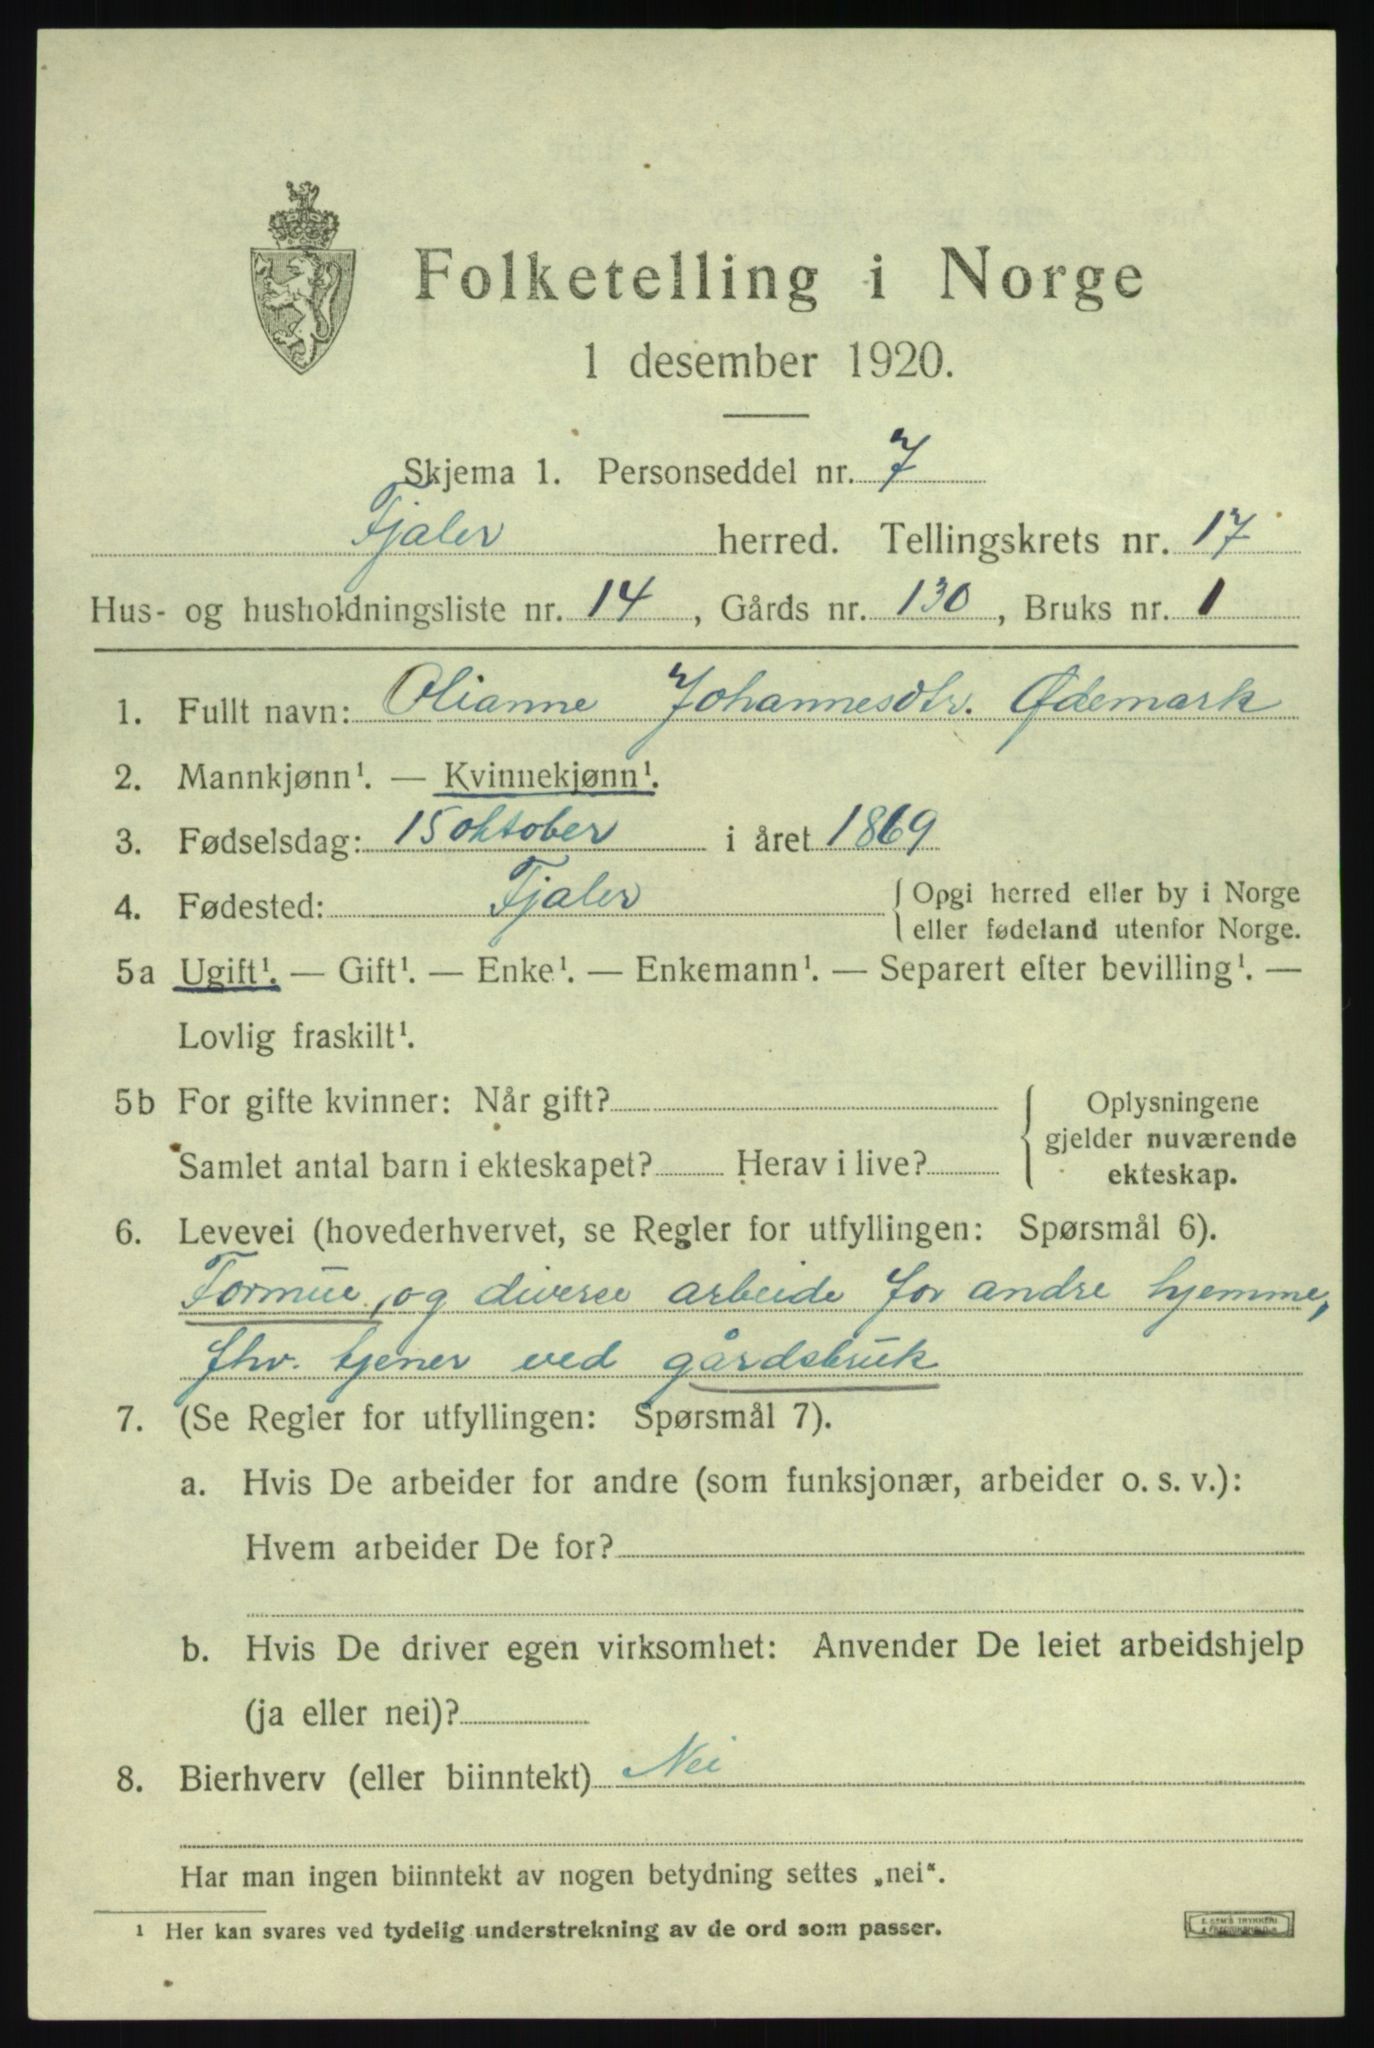 Folketelling i Norge
1 desember 1920.
Skjema 1. Personseddel nr. 7
Fjaler herred. Tellingskrets nr. 17
Hus- og husholdningsliste nr. 14, Gårds nr. 130, Bruks nr. 1
1. Fullt navn: Olianne Johannesdtr. Ødemark
2. Mannkjønn¹. — Kvinnekjønn¹.
3. Fødselsdag: 15 oktober i året 1869
4. Fødested: Fjaler { Opgi herred eller by i Norge
eller fødeland utenfor Norge.
5a Ugift¹. — Gift¹. — Enke¹. — Enkemann¹. — Separert efter bevilling¹. —
Lovlig fraskilt¹.
5b For gifte kvinner: Når gift?
Samlet antal barn i ekteskapet? Herav i live?
Oplysningene
gjelder nuværende
ekteskap.
6. Levevei (hovederhvervet, se Regler for utfyllingen: Spørsmål 6).
Formue, og diverse arbeide for andre hjemme,
fhv. tjener ved gårdsbruk
7. (Se Regler for utfyllingen: Spørsmål 7).
a. Hvis De arbeider for andre (som funksjonær, arbeider o. s. v.):
Hvem arbeider De for?
b. Hvis De driver egen virksomhet: Anvender De leiet arbeidshjelp
(ja eller nei)?
8. Bierhverv (eller biinntekt) Nei
Har man ingen biinntekt av nogen betydning settes „nei“.
¹ Her kan svares ved tydelig understrekning av de ord som passer.